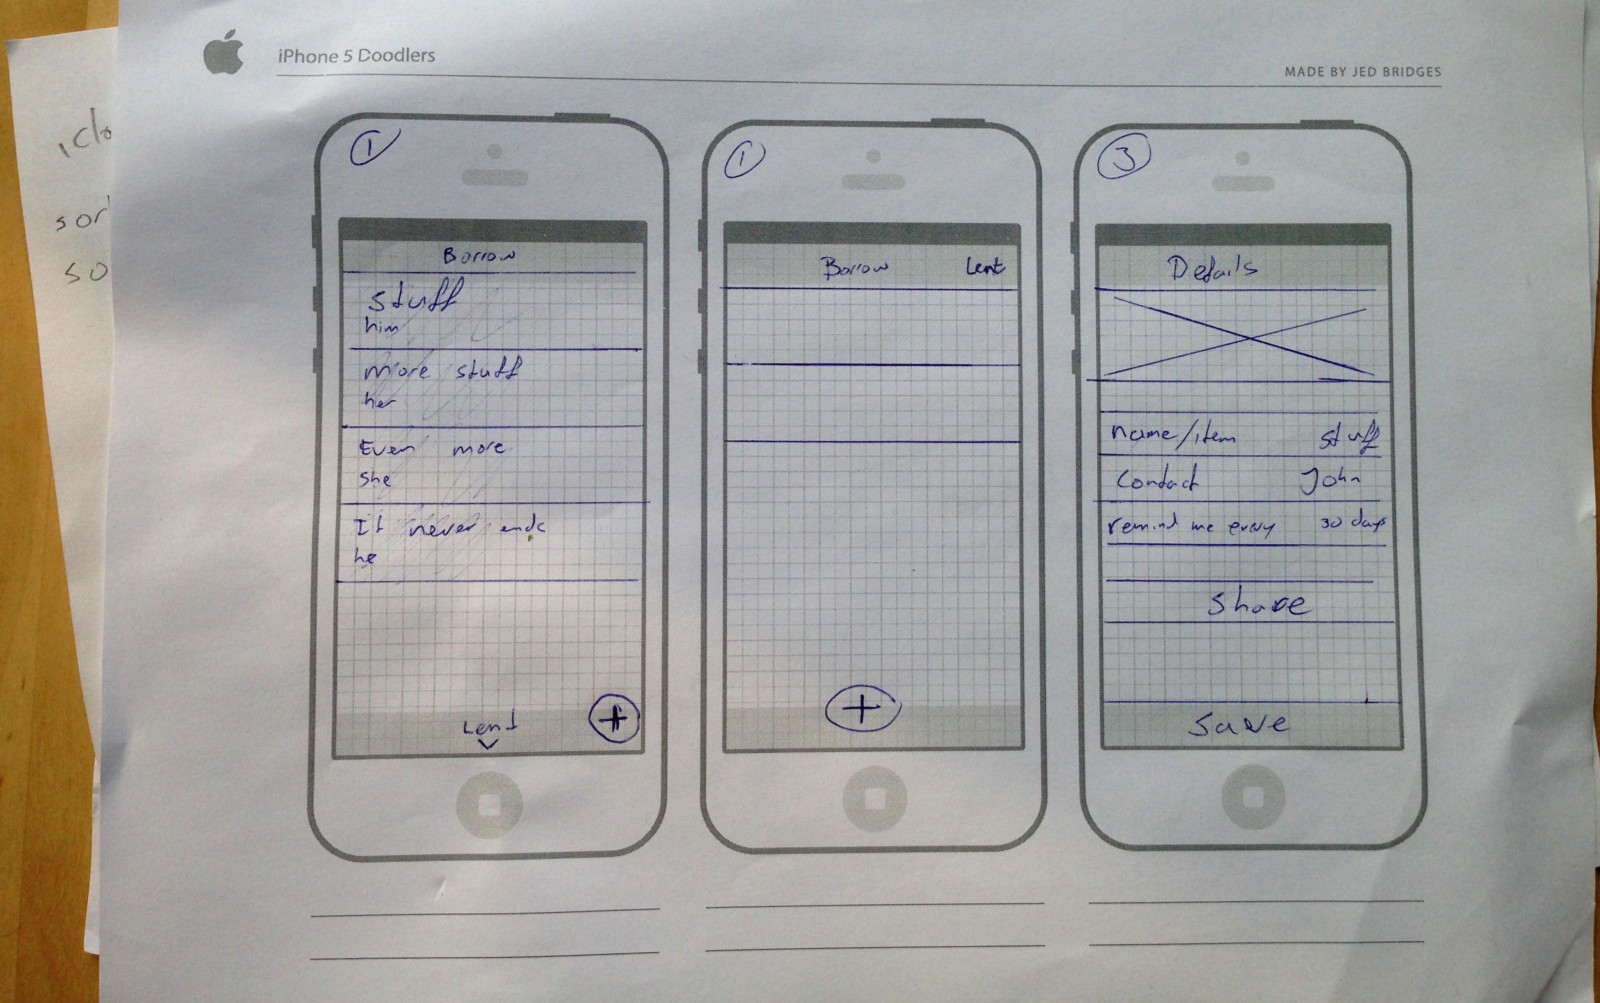 iPhone 5 Doodlers
MADE BY JED BRIDGES
iclo
sor
so
1
Borrow
stuff
him
more stuff
her
Even more
she
It never ends
he
Lent
+
1
Borrow Lent
+
3
Details
name/item stuff
Contact John
remind me every 30 days
Share
Save